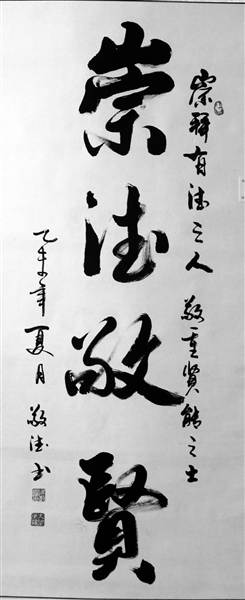 崇拜有德之人 敬重賢能之士
崇德敬賢
乙未年夏月 敬德书